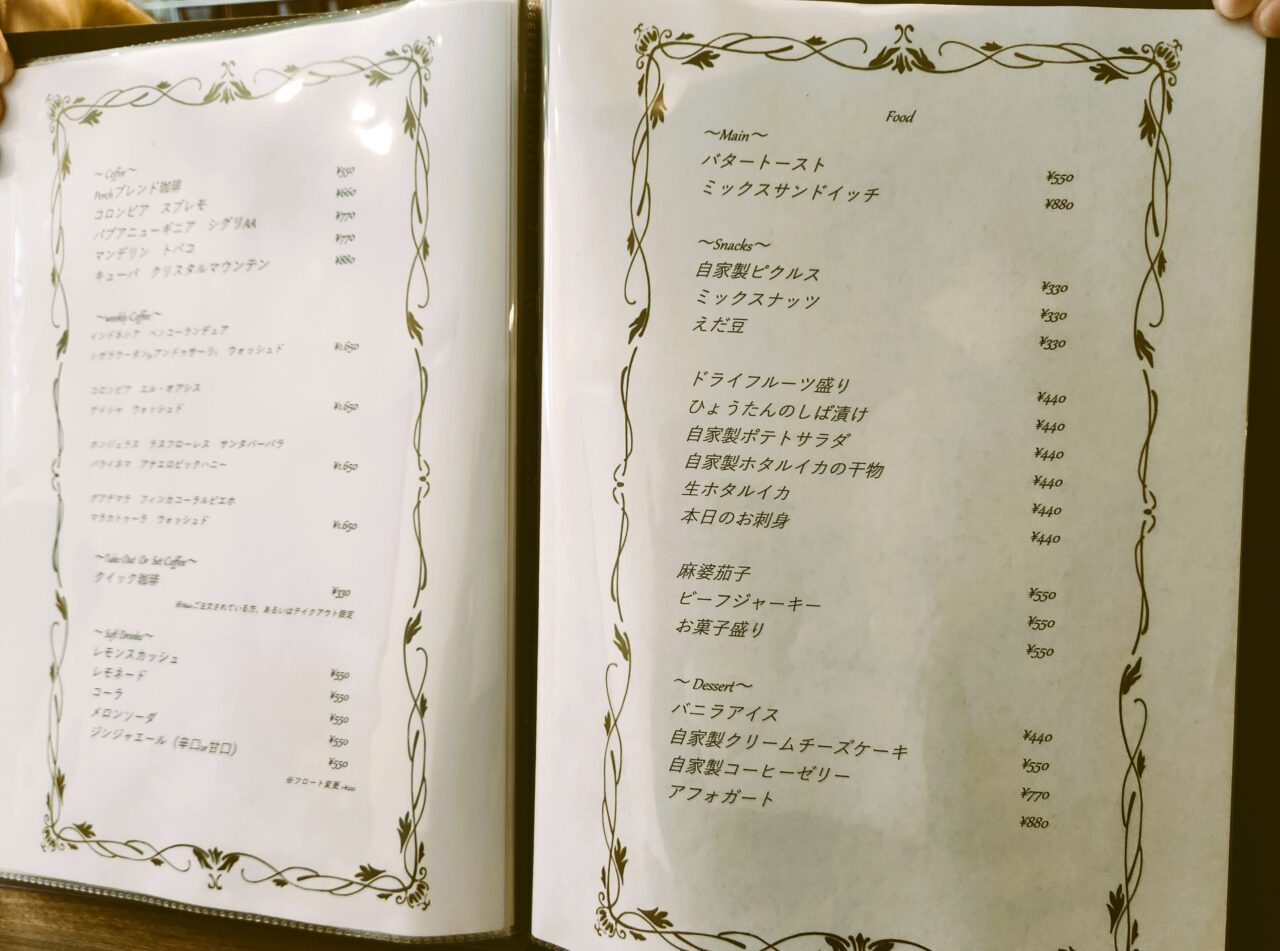 ～Coffee～
Perchブレンド珈琲 ¥550
コロンビア スプレモ ¥660
パプアニューギニア シグリAA ¥770
マンデリン トバコ ¥770
キューバ クリスタルマウンテン ¥880
～weekly Coffee～
インドネシア ペンコーランデュア
シガラウーダン,アンドゥサーリ, ウォッシュド ¥1,650
コロンビア エル・オアシス
ゲイシャ ウォッシュド ¥1,650
ホンジュラス ラスフローレス サンタバーバラ
パライネマ アナエロビックハニー ¥1,650
グアテマラ フィンカコーラルビエホ
マラカトゥーラ ウォッシュド ¥1,650
～Take Out Or Set Coffee～
クイック珈琲 ¥330
ご注文されている方、あるいはテイクアウト限定
～Soft Drinks～
レモンスカッシュ ¥550
レモネード ¥550
コーラ ¥550
メロンソーダ ¥550
ジンジャエール (辛口or甘口) ¥550
※フロート変更
Food
～Main～
バタートースト ¥550
ミックスサンドイッチ ¥880
～Snacks～
自家製ピクルス ¥330
ミックスナッツ ¥330
えだ豆 ¥330
ドライフルーツ盛り ¥440
ひょうたんのしば漬け ¥440
自家製ポテトサラダ ¥440
自家製ホタルイカの干物 ¥440
生ホタルイカ ¥440
本日のお刺身 ¥440
麻婆茄子 ¥550
ビーフジャーキー ¥550
お菓子盛り ¥550
～Dessert～
バニラアイス ¥440
自家製クリームチーズケーキ ¥550
自家製コーヒーゼリー ¥770
アフォガート ¥880